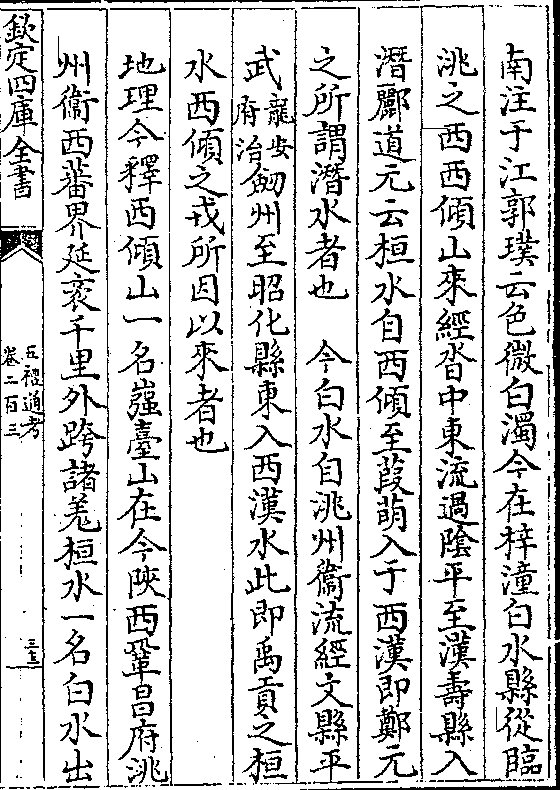 南注于江郭璞云色微白濁今在梓潼白水縣從臨
洮之西西傾山來經沓中東流過陰平至漢壽縣入
潛酈道元云桓水自西傾至葭萌入于西漢即鄭元
之所謂潛水者也　今白水自洮州衞流經文縣平
武龍安府治劒州至昭化縣東入西漢水此即禹貢之桓
水西傾之戎所因以來者也
地理今釋西傾山一名嵹臺山在今陝西鞏昌府洮
州衞西蕃界延袤千里外跨諸羌桓水一名白水出
欽定四庫全書
五禮通考
卷二百三
三十三